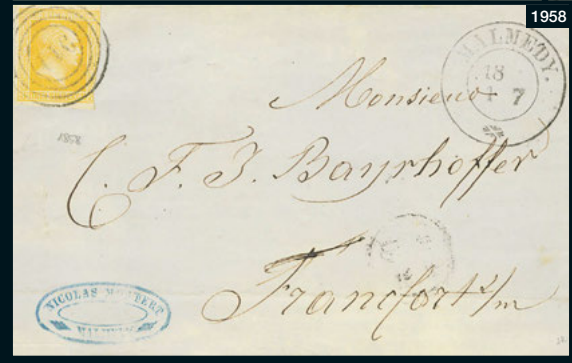 1958
MALMEDY.
18
7
Monsieur
C. F. J. Bayrhoffer
Francfort s/m
1858
NICOLAS
MALMEDY